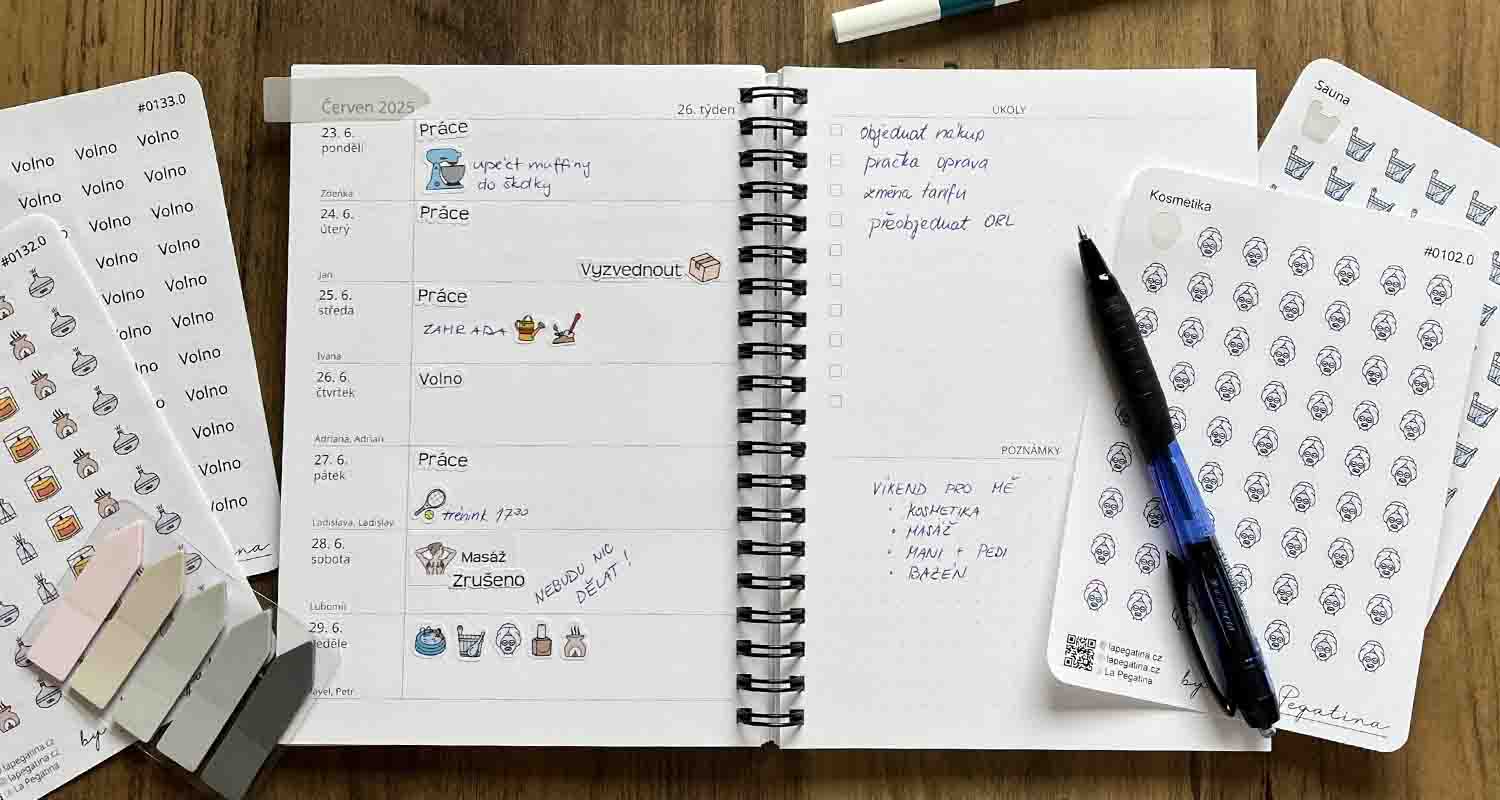 #0133.0
Volno Volno Volno
Volno Volno Volno
Volno Volno
Volno Volno
Volno Volno
Volno Volno
Volno Volno
Volno Volno
Volno
Volno
Volno
Volno
#0132.0
by
lapegatina.cz
lapegatina.cz
La Pegatina
Červen 2025
26. týden
23. 6.
pondělí
Zdeňka
Práce
upéct muffiny
do školky
24. 6.
úterý
Jan
Práce
Vyzvednout
25. 6.
středa
Ivana
Práce
ZAHRADA
26. 6.
čtvrtek
Adriana, Adrian
Volno
27. 6.
pátek
Ladislava, Ladislav
Práce
trénink 17³⁰
28. 6.
sobota
Lubomír
Masáž
Zrušeno
NEBUDU NIC
DĚLAT!
29. 6.
neděle
Pavel, Petr
ÚKOLY
objednat nákup
pračka oprava
změna tarifu
přeobjednat ORL
POZNÁMKY
VÍKEND PRO MĚ
• KOSMETIKA
• MASÁŽ
• MANI + PEDI
• BAZÉN
Sauna
Kosmetika
#0102.0
lapegatina.cz
lapegatina.cz
La Pegatina
by
Pegatina